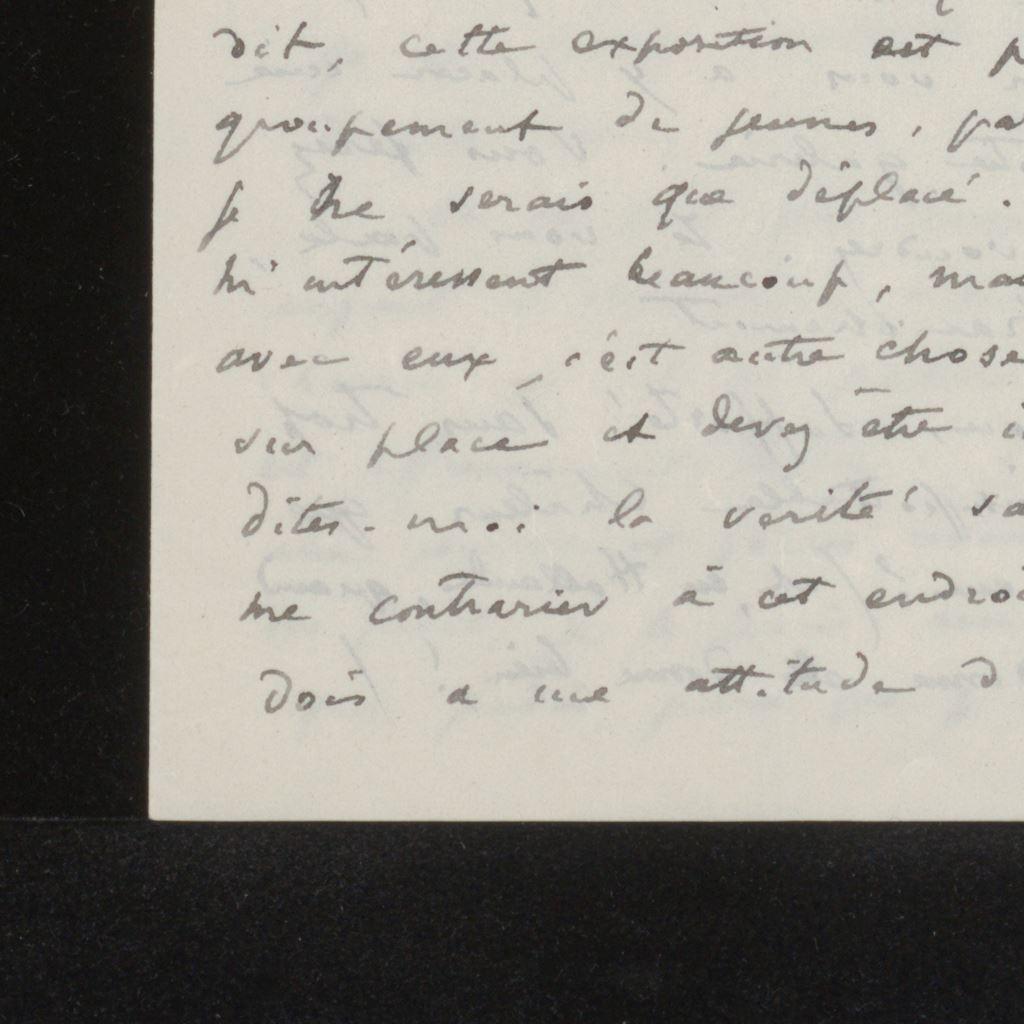 dit, cette exposition est p
groupement de jeunes, par
je ne serais que déplacé.
m'intéressent beaucoup, mai
avec eux, c'est autre chose
sur place et devez être i
dites-moi la verité sa
me contrarier à cet endroi
dois a une attitude d